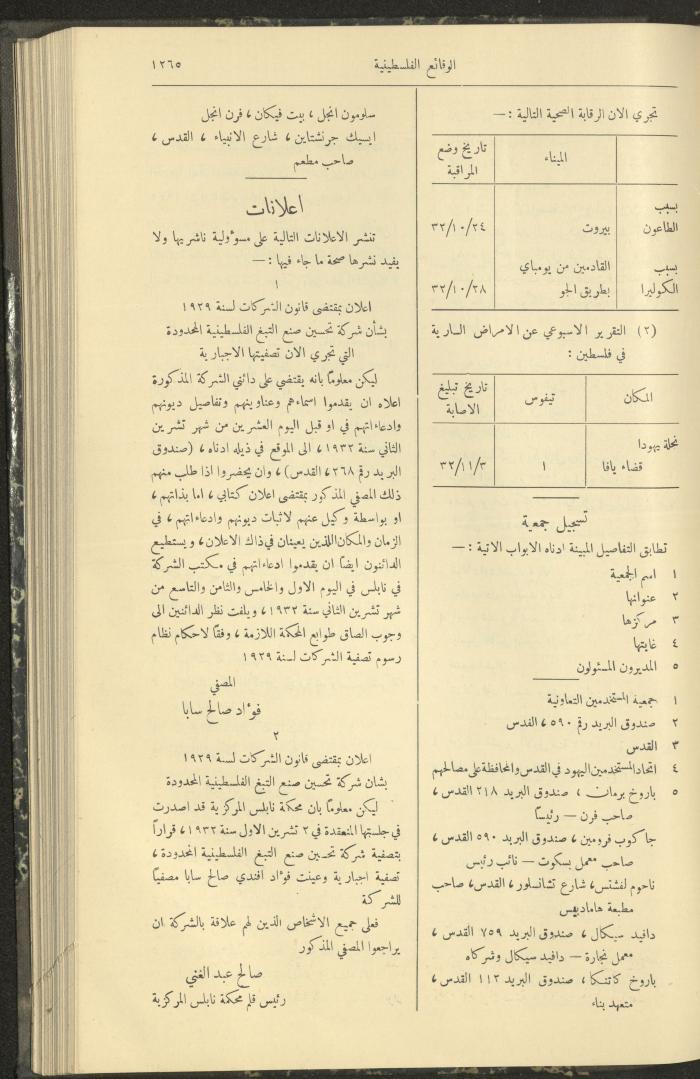 الوقائع الفلسطينية
١٢٦٥
تجري الان الرقابة الصحية التالية : —
الميناء
تاريخ وضع المراقبة
بسبب الطاعون
بيروت
٣٢/١٠/٢٤
بسبب الكوليرا
القادمين من بومباي بطريق الجو
٣٢/١٠/٢٨
(٢) التقرير الاسبوعي عن الامراض السارية
في فلسطين :
المكان
تيفوس
تاريخ تبليغ الاصابة
نحلة يهودا
قضاء يافا
١
٣٢/١١/٣
تسجيل جمعية
تطابق التفاصيل المبينة ادناه الابواب الاتية : —
١ اسم الجمعية
٢ عنوانها
٣ مركزها
٤ غايتها
٥ المديرون المسئولون
١ جمعية المستخدمين التعاونية
٢ صندوق البريد رقم ٥٩٠ ، القدس
٣ القدس
٤ اتحاد المستخدمين اليهود في القدس والمحافظة على مصالحهم
٥ باروخ برمان ، صندوق البريد ٢١٨ القدس ،
صاحب فرن — رئيسًا
جاكوب فرومين ، صندوق البريد ٥٩٠ القدس ،
صاحب معمل بسكوت — نائب رئيس
ناحوم لفشتس، شارع تشانسلور ، القدس، صاحب
مطبعة هاماديس
دافيد سيكال ، صندوق البريد ٧٥٩ القدس ،
معمل نجارة — دافيد سيكال وشركاه
باروخ كاتنكا ، صندوق البريد ١١٣ القدس ،
متعهد بناء
سلومون انجل ، بيت فيكان ، فرن انجل
ايسيك جرنشتاين ، شارع الانبياء ، القدس ،
صاحب مطعم
اعلانات
تنشر الاعلانات التالية على مسوؤلية ناشريها ولا
يفيد نشرها صحة ما جاء فيها : —
١
اعلان بمقتضى قانون الشركات لسنة ١٩٢٩
بشأن شركة تحسين صنع التبغ الفلسطينية المحدودة
التي تجري الان تصفيتها الاجبارية
ليكن معلومًا بانه يقتضي على دائني الشركة المذكورة
اعلاه ان يقدموا اسماءهم وعناوينهم وتفاصيل ديونهم
وادعاءاتهم في او قبل اليوم العشرين من شهر تشرين
الثاني سنة ١٩٣٢ ، الى الموقع في ذيله ادناه ، (صندوق
البريد رقم ٢٦٨ ، القدس) ، وان يحضروا اذا طلب منهم
ذلك المصفي المذكور بمقتضى اعلان كتابي ، اما بذاتهم ،
او بواسطة وكيل عنهم لاثبات ديونهم وادعاءاتهم ، في
الزمان والمكان اللذين يعينان في ذاك الاعلان، ويستطيع
الدائنون ايضًا ان يقدموا ادعاءاتهم في مكتب الشركة
في نابلس في اليوم الاول والخامس والثامن والتاسع من
شهر تشرين الثاني سنة ١٩٣٢ ، ويلفت نظر الدائنين الى
وجوب الصاق طوابع المحكمة اللازمة ، وفقًا لاحكام نظام
رسوم تصفية الشركات لسنة ١٩٢٩
المصفي
فوءاد صالح سابا
٢
اعلان بمقتضى قانون الشركات لسنة ١٩٢٩
بشان شركة تحسين صنع التبغ الفلسطينية المحدودة
ليكن معلومًا بان محكمة نابلس المركزية قد اصدرت
في جلستها المنعقدة في ٢ تشرين الاول سنة ١٩٣٢ ، قرارًا
بتصفية شركة تحسين صنع التبغ الفلسطينية المحدودة ،
تصفية اجبارية وعينت فوءاد افندي صالح سابا مصفيًا
للشركة
فعلى جميع الاشخاص الذين لهم علاقة بالشركة ان
يراجعوا المصفي المذكور
صالح عبد الغني
رئيس قلم محكمة نابلس المركزية